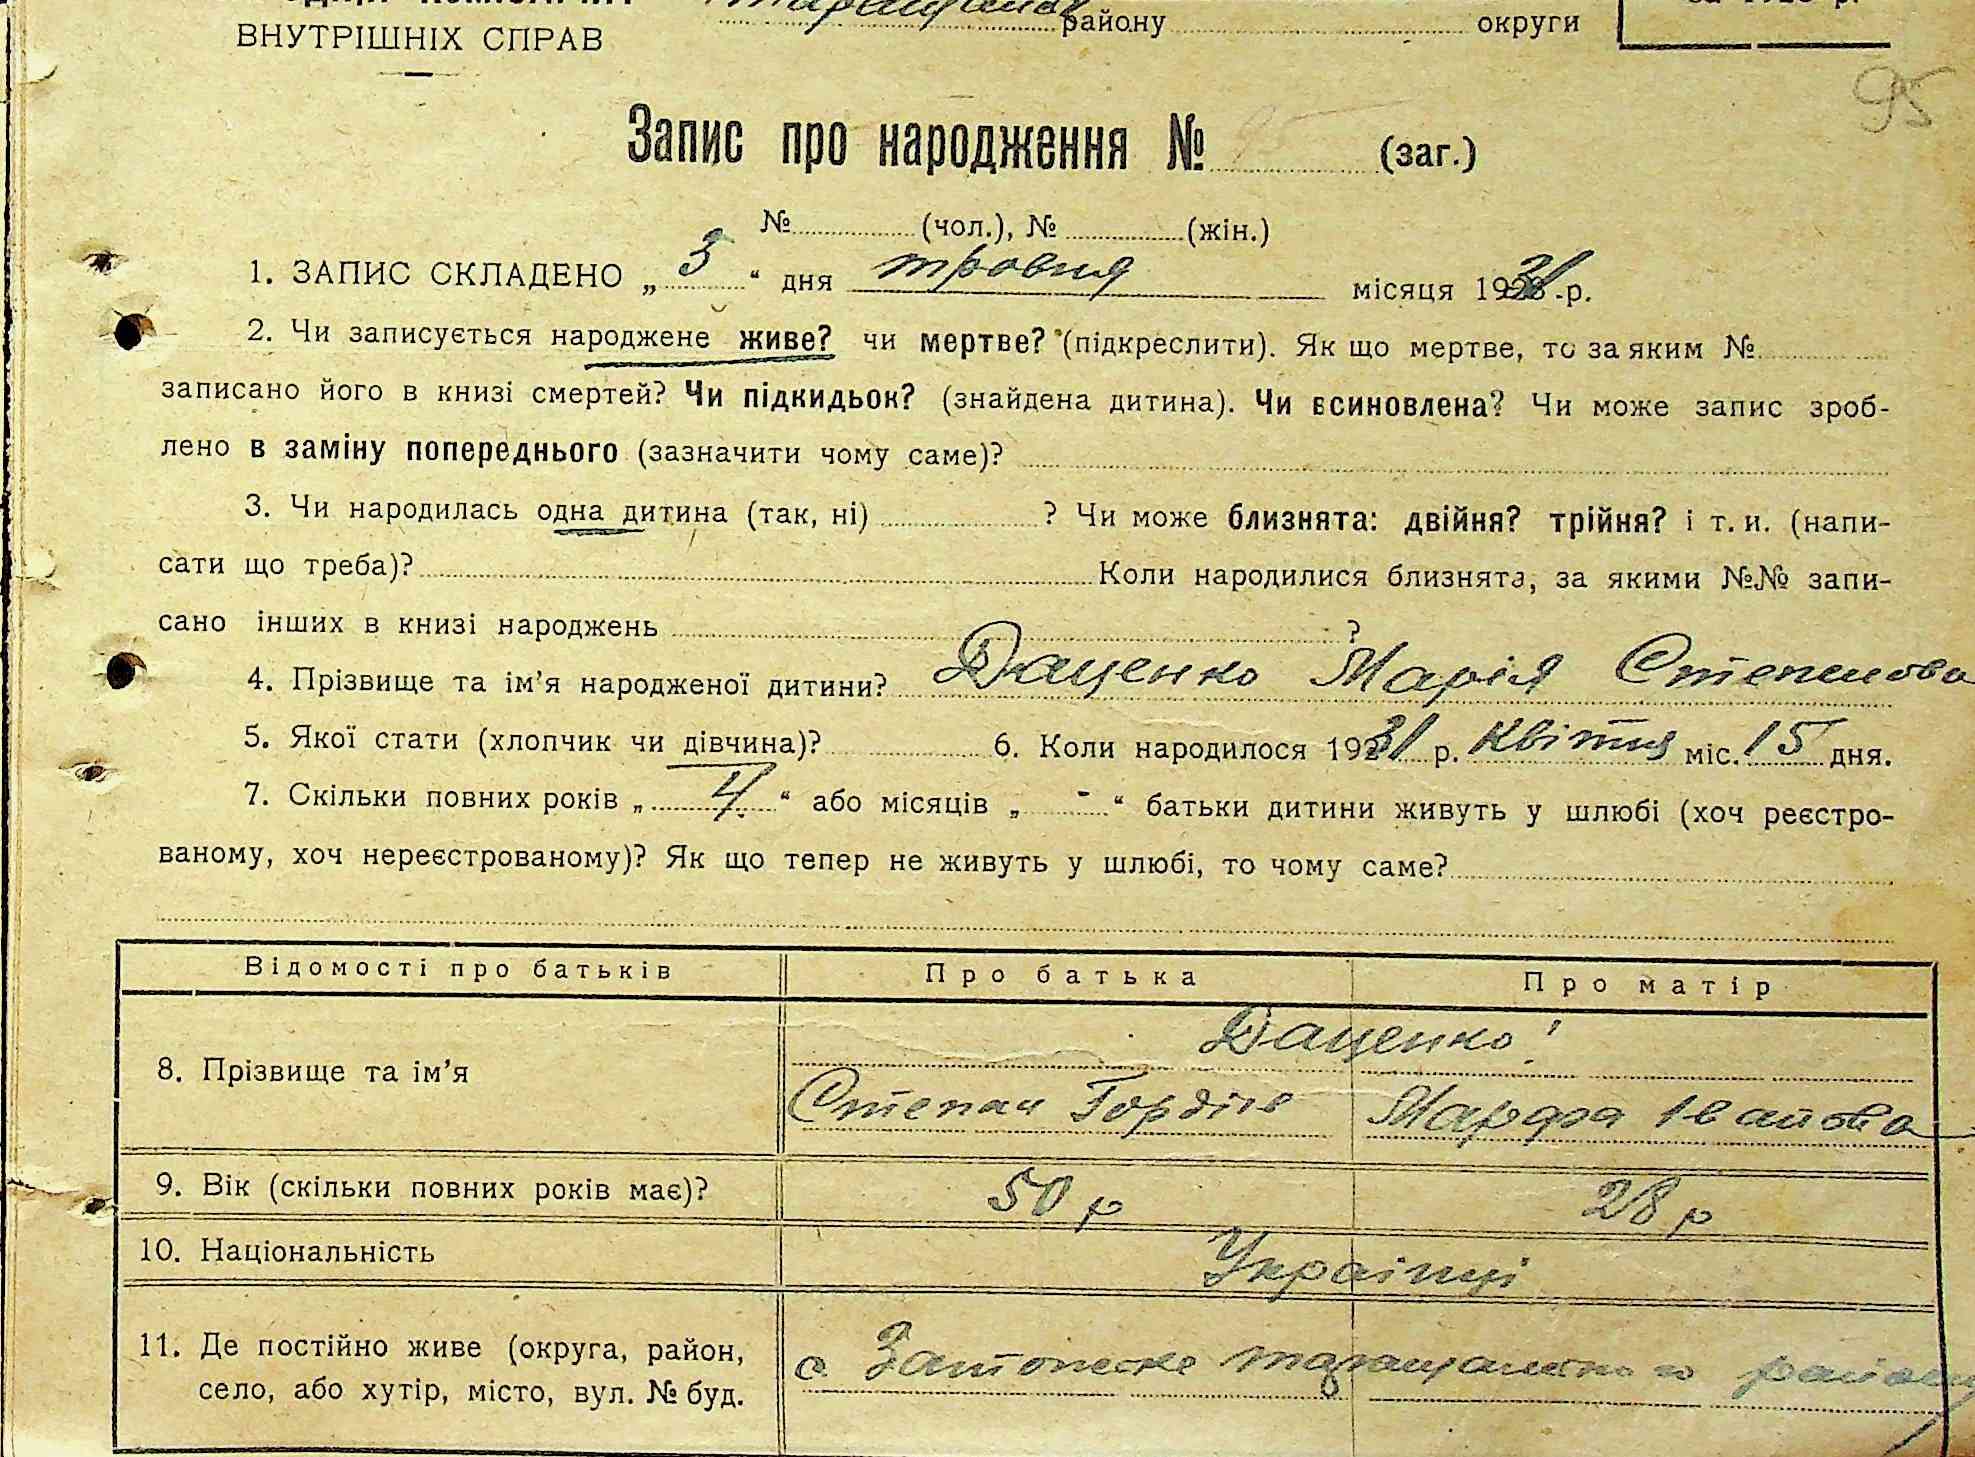 ВНУТРІШНІХ СПРАВ
району округи
95
Запис про народження № 95 (заг.)
№ (чол.), № (жін.)
1. ЗАПИС СКЛАДЕНО „ 3 “ дня травня місяця 1931 р.
2. Чи записується народжене живе? чи мертве? (підкреслити). Як що мертве, то за яким №
записано його в книзі смертей? Чи підкидьок? (знайдена дитина). Чи всиновлена? Чи може запис зроб-
лено в заміну попереднього (зазначити чому саме)?
3. Чи народилась одна дитина (так, ні) ? Чи може близнята: двійня? трійня? і т. и. (напи-
сати що треба)? Коли народилися близнята, за якими №№ запи-
сано інших в книзі народжень ?
4. Прізвище та ім’я народженої дитини? Даценко Марія Степанова
5. Якої стати (хлопчик чи дівчина)? 6. Коли народилося 1931 р. Квітня міс. 15 дня.
7. Скільки повних років „ 4 “ або місяців „ - “ батьки дитини живуть у шлюбі (хоч реєстро-
ваному, хоч нереєстрованому)? Як що тепер не живуть у шлюбі, то чому саме?
Відомості про батьків Про батька Про матір
Даценко
8. Прізвище та ім’я
Степан Гордіїв Марфа Іванова
9. Вік (скільки повних років має)? 50 р 28 р
10. Національність Українці
11. Де постійно живе (округа, район, с таращанського району
село, або хутір, місто, вул. № буд.